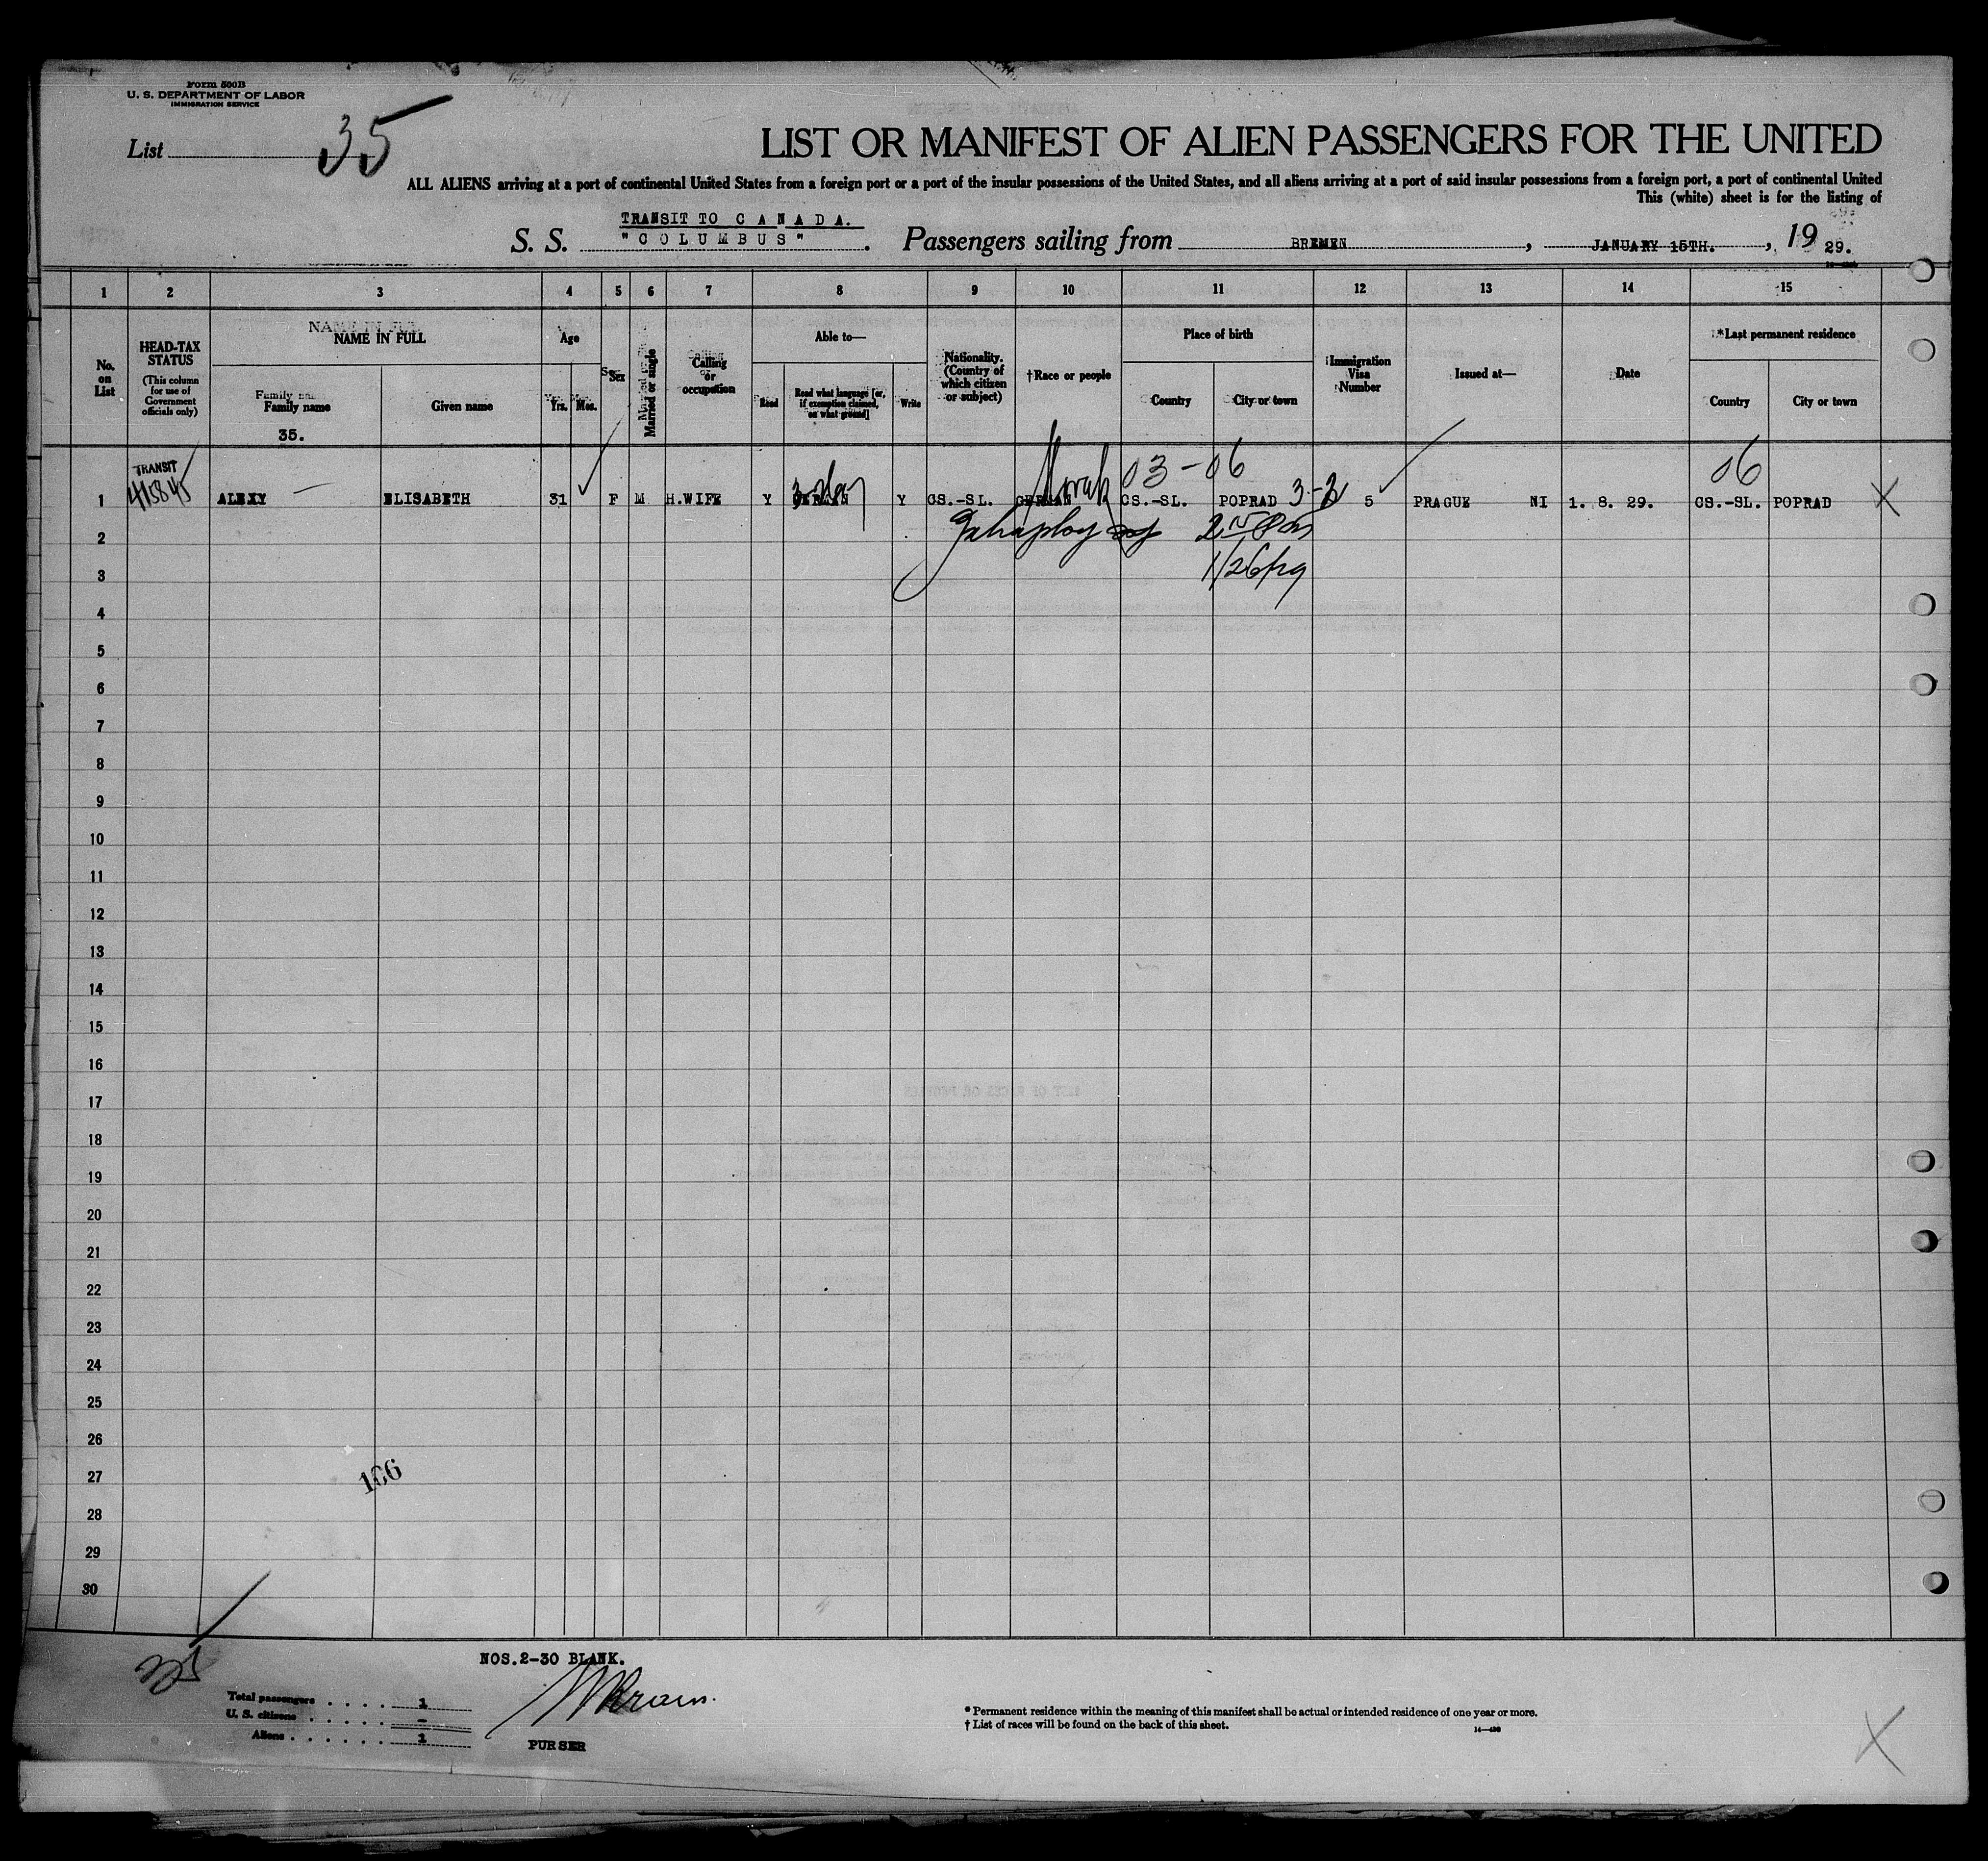 Form 500B
U. S. DEPARTMENT OF LABOR
IMMIGRATION SERVICE
List 35
LIST OR MANIFEST OF ALIEN PASSENGERS FOR THE UNITED
ALL ALIENS arriving at a port of continental United States from a foreign port or a port of the insular possessions of the United States, and all aliens arriving at a port of said insular possessions from a foreign port, a port of continental United
This (white) sheet is for the listing of
TRANSIT TO C A N A D A.
S. S. "C O L U M B U S". Passengers sailing from BREMEN, JANUARY 15TH., 1929.
1 2 3 4 5 6 7 8 9 10 11 12 13 14 15
No. on List
HEAD-TAX STATUS
(This column for use of Government officials only)
NAME IN FULL
Family name
Given name
35.
Age
Yrs. Mos.
Sex
Married or single
Calling or occupation
Able to—
Read
Read what language [or, if exemption claimed, on what ground]
Write
Nationality. (Country of which citizen or subject)
†Race or people
Place of birth
Country
City or town
Immigration Visa Number
Issued at—
Date
*Last permanent residence
Country
City or town
03-06
06
TRANSIT
1 ALEXY — ELISABETH 31 F M H.WIFE Y GERMAN Y CS.-SL. GERMAN CS.-SL. POPRAD 5 PRAGUE NI 1. 8. 29. CS.-SL. POPRAD X
2
3
4
5
6
7
8
9
10
11
12
13
14
15
16
17
18
19
20
21
22
23
24
25
26
27
28
29
30
166
35
NOS.2-30 BLANK.
Total passengers . . . . 1
U. S. citizens . . . . . –
Aliens . . . . . . 1
PURSER
* Permanent residence within the meaning of this manifest shall be actual or intended residence of one year or more.
† List of races will be found on the back of this sheet.
X